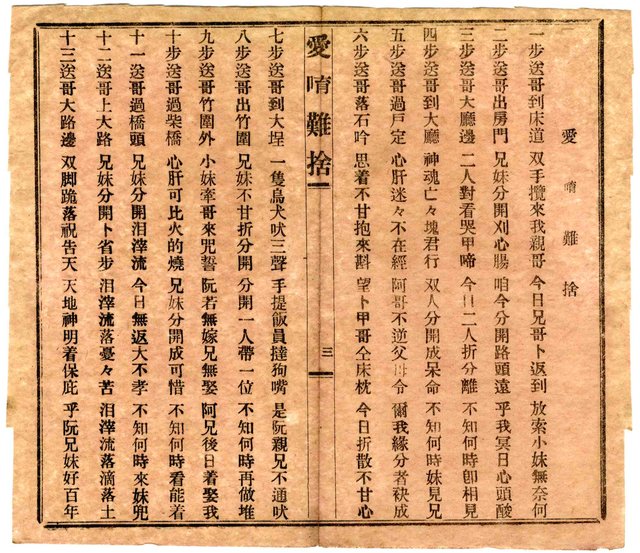 愛唷難捨
一步送哥到床道 双手攬來我親哥 今日兄哥卜返到 放索小妹無奈何
二步送哥出房門 兄妹分開刈心腸 咱今分開路頭遠 乎我冥日心頭酸
三步送哥大廳邊 二人對看哭甲啼 今日二人折分離 不知何時卽相見
四步送哥到大廳 神魂亡々塊君行 双人分開成呆命 不知何時妹見兄
五步送哥過戶定 心肝迷々不在經 阿哥不逆父母令 爾我緣分者袂成
六步送哥落石吟 思着不甘抱來斟 望卜甲哥仝床枕 今日折散不甘心
愛唷難捨
三
七步送哥到大埕 一隻烏犬吠三聲 手提飯員撻狗嘴 是阮親兄不通吠
八步送哥出竹圍 兄妹不甘折分開 分開一人帶一位 不知何時再做堆
九步送哥竹圍外 小妹牽哥來咒誓 阮若無嫁兄無娶 阿兄後日着娶我
十步送哥過柴橋 心肝可比火的燒 兄妹分開成可惜 不知何時看能着
十一送哥過橋頭 兄妹分開泪滓流 今日無返大不孝 不知何時來妹兜
十二送哥上大路 兄妹分開卜省步 泪滓流落憂々苦 泪滓流落滴落土
十三送哥大路邊 双脚跪落祝告天 天地神明着保庇 乎阮兄妹好百年